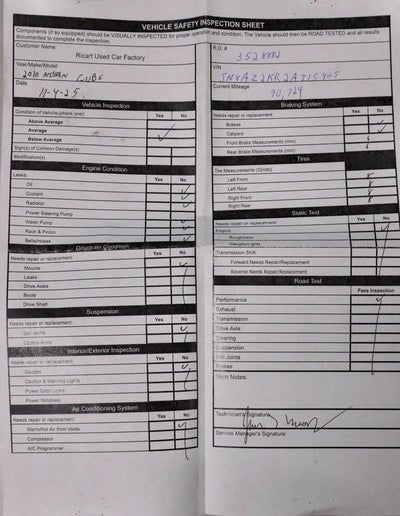 VEHICLE SAFETY INSPECTION SHEET
Components (if so equipped) should be VISUALLY INSPECTED for proper operation and condition. The Vehicle should then be ROAD TESTED and all results
documented to complete the inspection.
Customer Name:
Ricart Used Car Factory
Year/Make/Model
2010 NISSAN CUBE
Date
11-4-25
Vehicle Inspection
Condition of Vehicle (check one): Yes No
Above Average
Average
Below Average
Sign(s) of Collision Damage(s)
Modification(s)
Engine Condition
Leaks: Yes No
Oil
Coolant
Radiator
Power Steering Pump
Water Pump
Rack & Pinion
Belts/Hoses
Drivetrain Condition
Needs repair or replacement: Yes No
Mounts
Leaks
Drive Axles
Boots
Drive Shaft
Suspension
Needs repair or replacement: Yes No
Ball Joints
Control Arms
Interior/Exterior Inspection
Needs repair or replacement: Yes No
Gauges
Caution & Warning Lights
Power Door Locks
Power Windows
Air Conditioning System
Needs repair or replacement: Yes No
Warm/Hot Air from Vents
Compressor
A/C Programmer
R.O. #
3528882
VIN
Current Mileage
90,724
Braking System
Needs repair or replacement Yes No
Brakes
Calipers
Front Brake Measurements (mm) 6
Rear Brake Measurements (mm) 6
Tires
Tire Measurements (32nds)
Left Front 8
Left Rear 8
Right Front 8
Right Rear 8
Static Test
Needs repair or replacement: Yes No
Engine:
Roughness
Gauges/Lights
Transmission Shift:
Forward Needs Repair/Replacement
Reverse Needs Repair/Replacement
Road Test
Pass Inspection
Performance
Exhaust
Transmission
Drive Axle
Steering
Suspension
Ball Joints
Brakes
Tech Notes:
Technician's Signature
Service Manager's Signature: